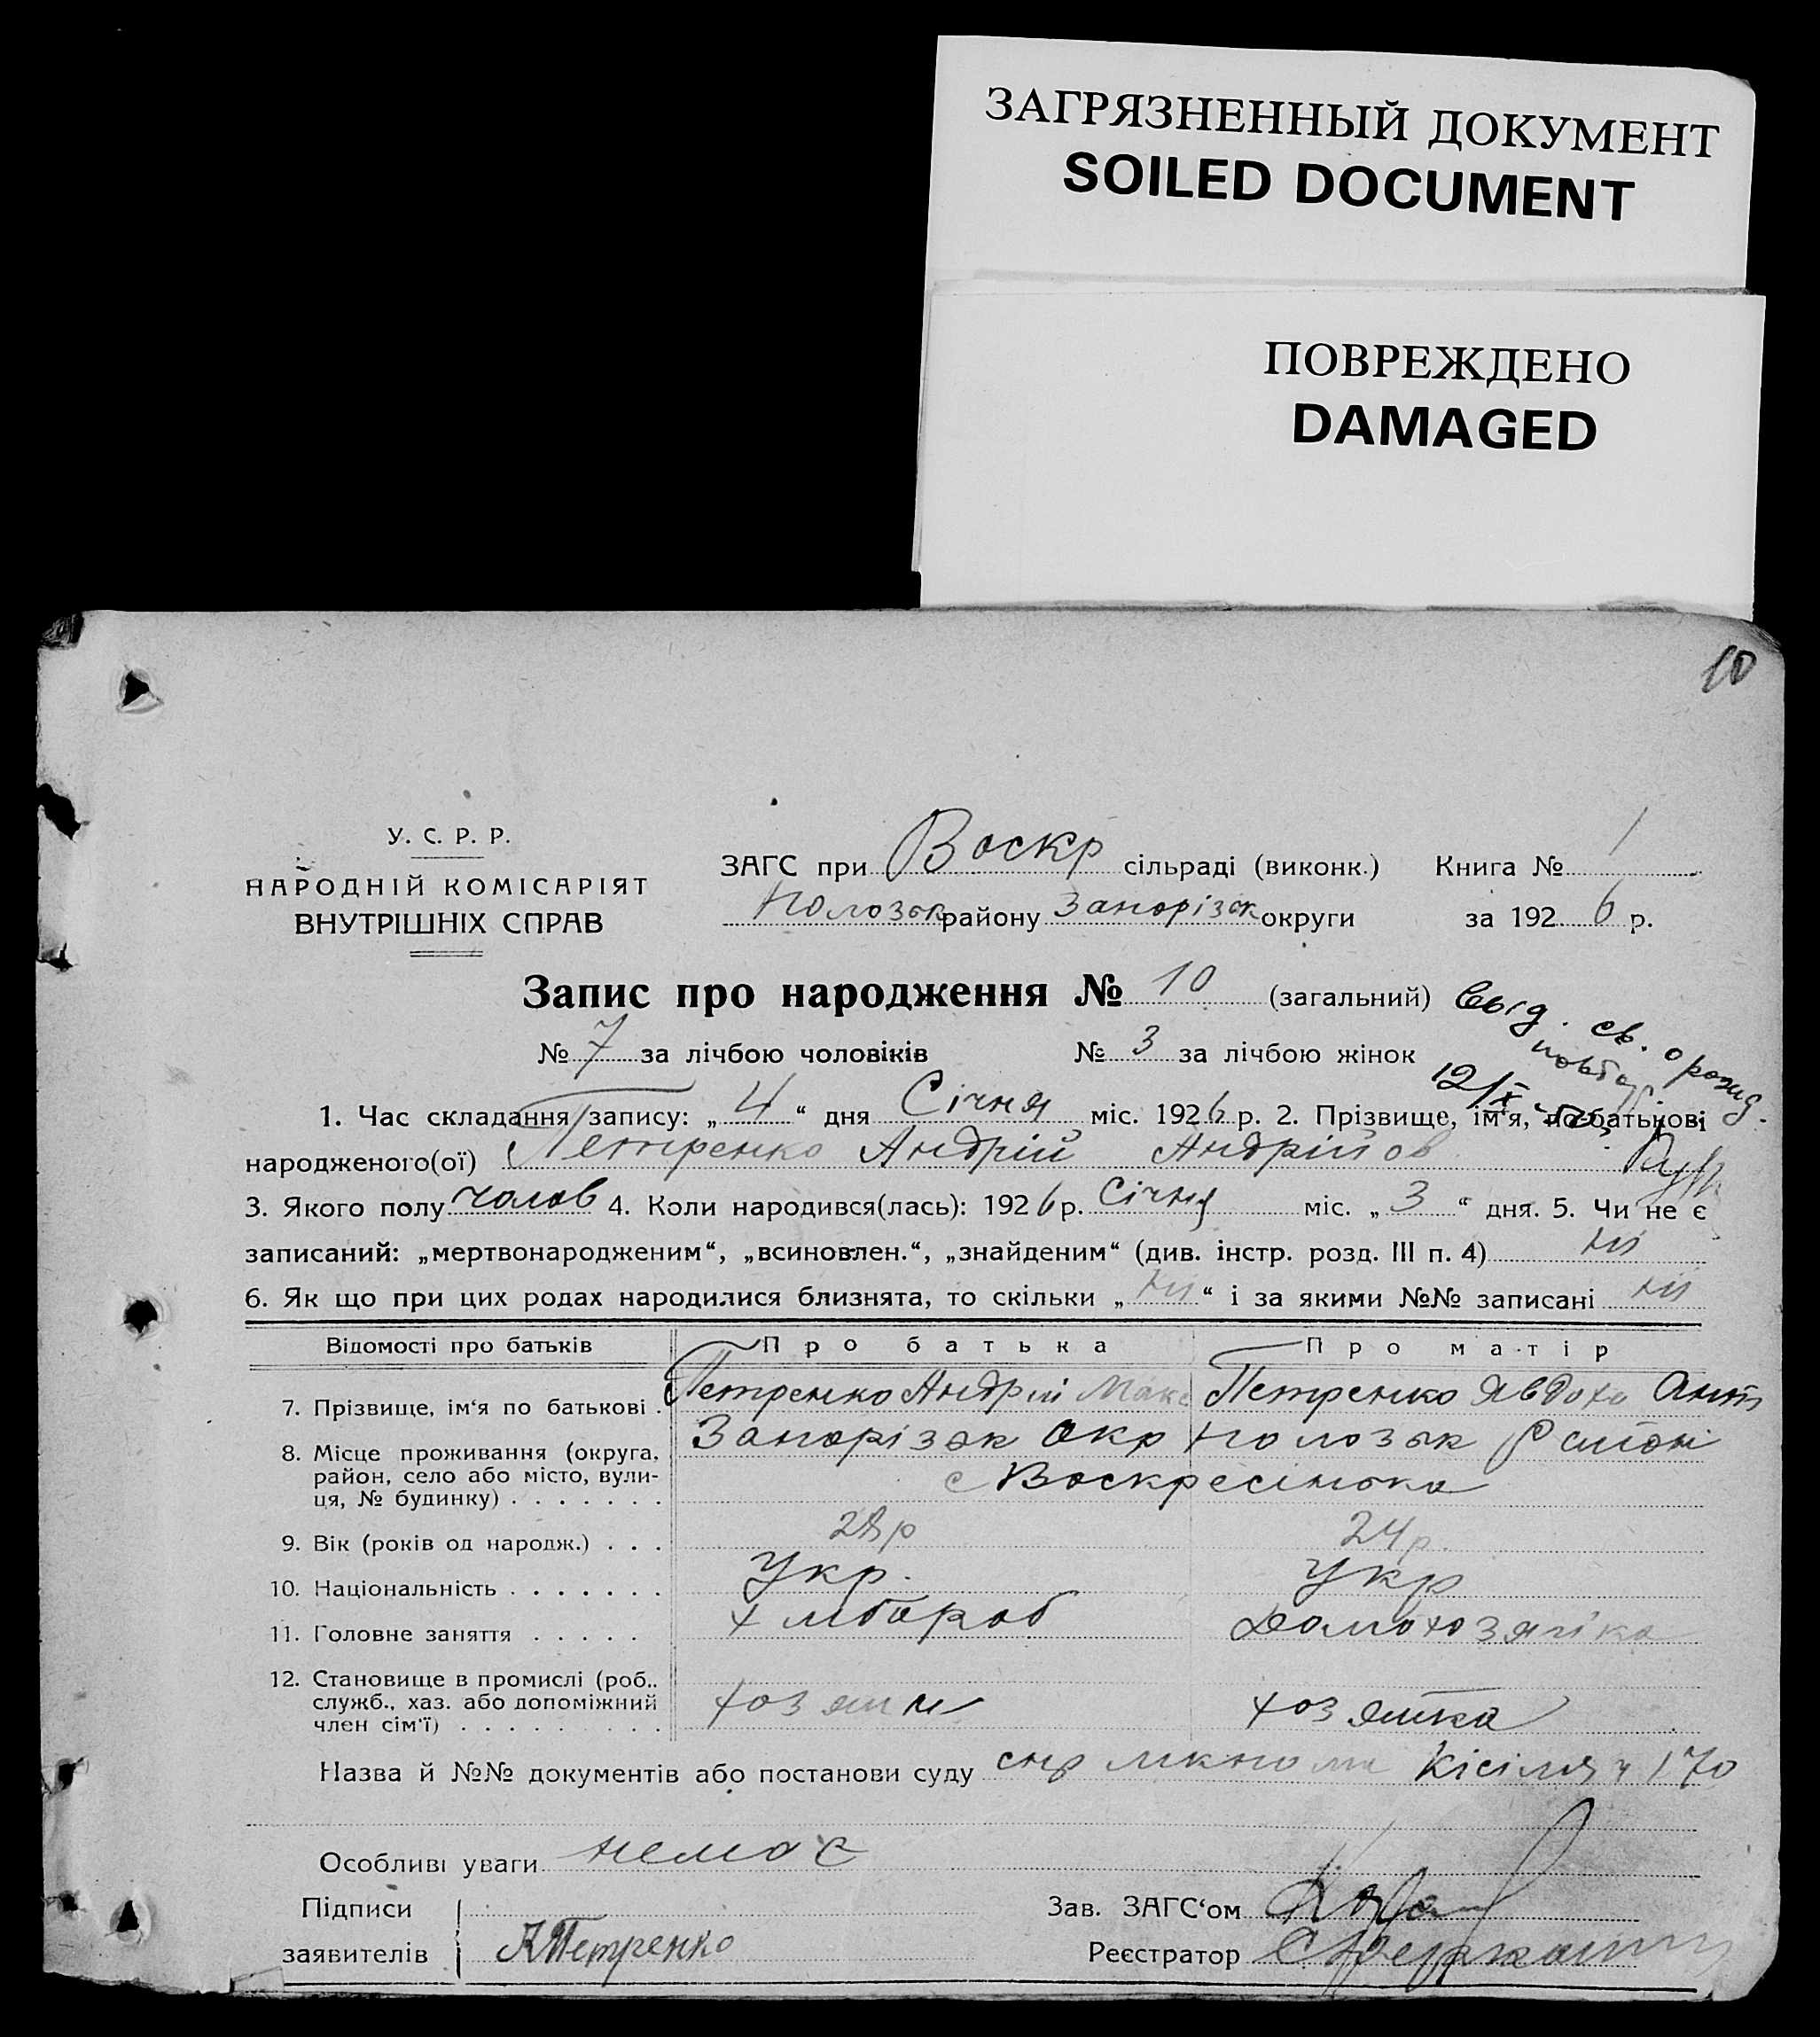 ЗАГРЯЗНЕННЫЙ ДОКУМЕНТ
SOILED DOCUMENT
ПОВРЕЖДЕНО
DAMAGED
10
У. С. Р. Р.
НАРОДНІЙ КОМІСАРІЯТ
ВНУТРІШНІХ СПРАВ
ЗАГС при Воскр сільраді (виконк.) Книга № 1
Полозьк району Запорізьк округи за 1926 р.
Запис про народження № 10 (загальний)
Выд. св. о рожд.
№ 7 за лічбою чоловіків № 3 за лічбою жінок
12/X
1. Час складання запису: „4“ дня Січня міс. 1926 р. 2. Прізвище, ім'я, по батькові
народженого(ої) Петренко Андрій Андрійов
3. Якого полу чолов 4. Коли народився(лась): 1926 р. Січня міс. „3“ дня. 5. Чи не є
записаний: „мертвонародженим“, „всиновлен.“, „знайденим“ (див. інстр. розд. III п. 4) ні
6. Як що при цих родах народилися близнята, то скільки „ні“ і за якими №№ записані ні
Відомості про батьків Про батька Про матір
7. Прізвище, ім'я по батькові . Петренко Андрій Макс Петренко Явдоха Ант
8. Місце проживання (округа, Запорізьк Окр Полозьк Району
район, село або місто, вули- с Воскресінока
ця, № будинку) . . . . . . .
9. Вік (років од народж.) . . . 28р 24р.
10. Національність . . . . . . . Укр. Укр
11. Головне заняття . . . . . хліборob Домохозяйка
12. Становище в промислі (роб.,
служб., хаз. або допоміжний хозяин хозяйка
член сім'ї) . . . . . . . . .
Назва й №№ документів або постанови суду Кісіля 170
Особливі уваги немає
Підписи Зав. ЗАГС'ом
заявителів А Петренко Реєстратор